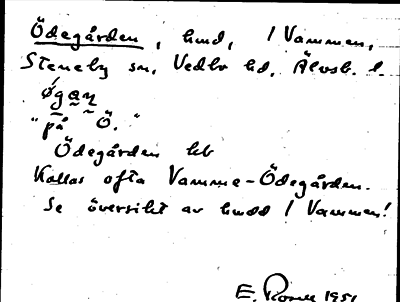 Ödegården, hmd, / Vammen,
Steneby sn, Vedbo hd, Älvsb. l.
øgan
"på Ö."
Ödegården hb
Kallas ofta Vamme-Ödegården.
Se översikt av hmdd / Vammen!
E. 1951